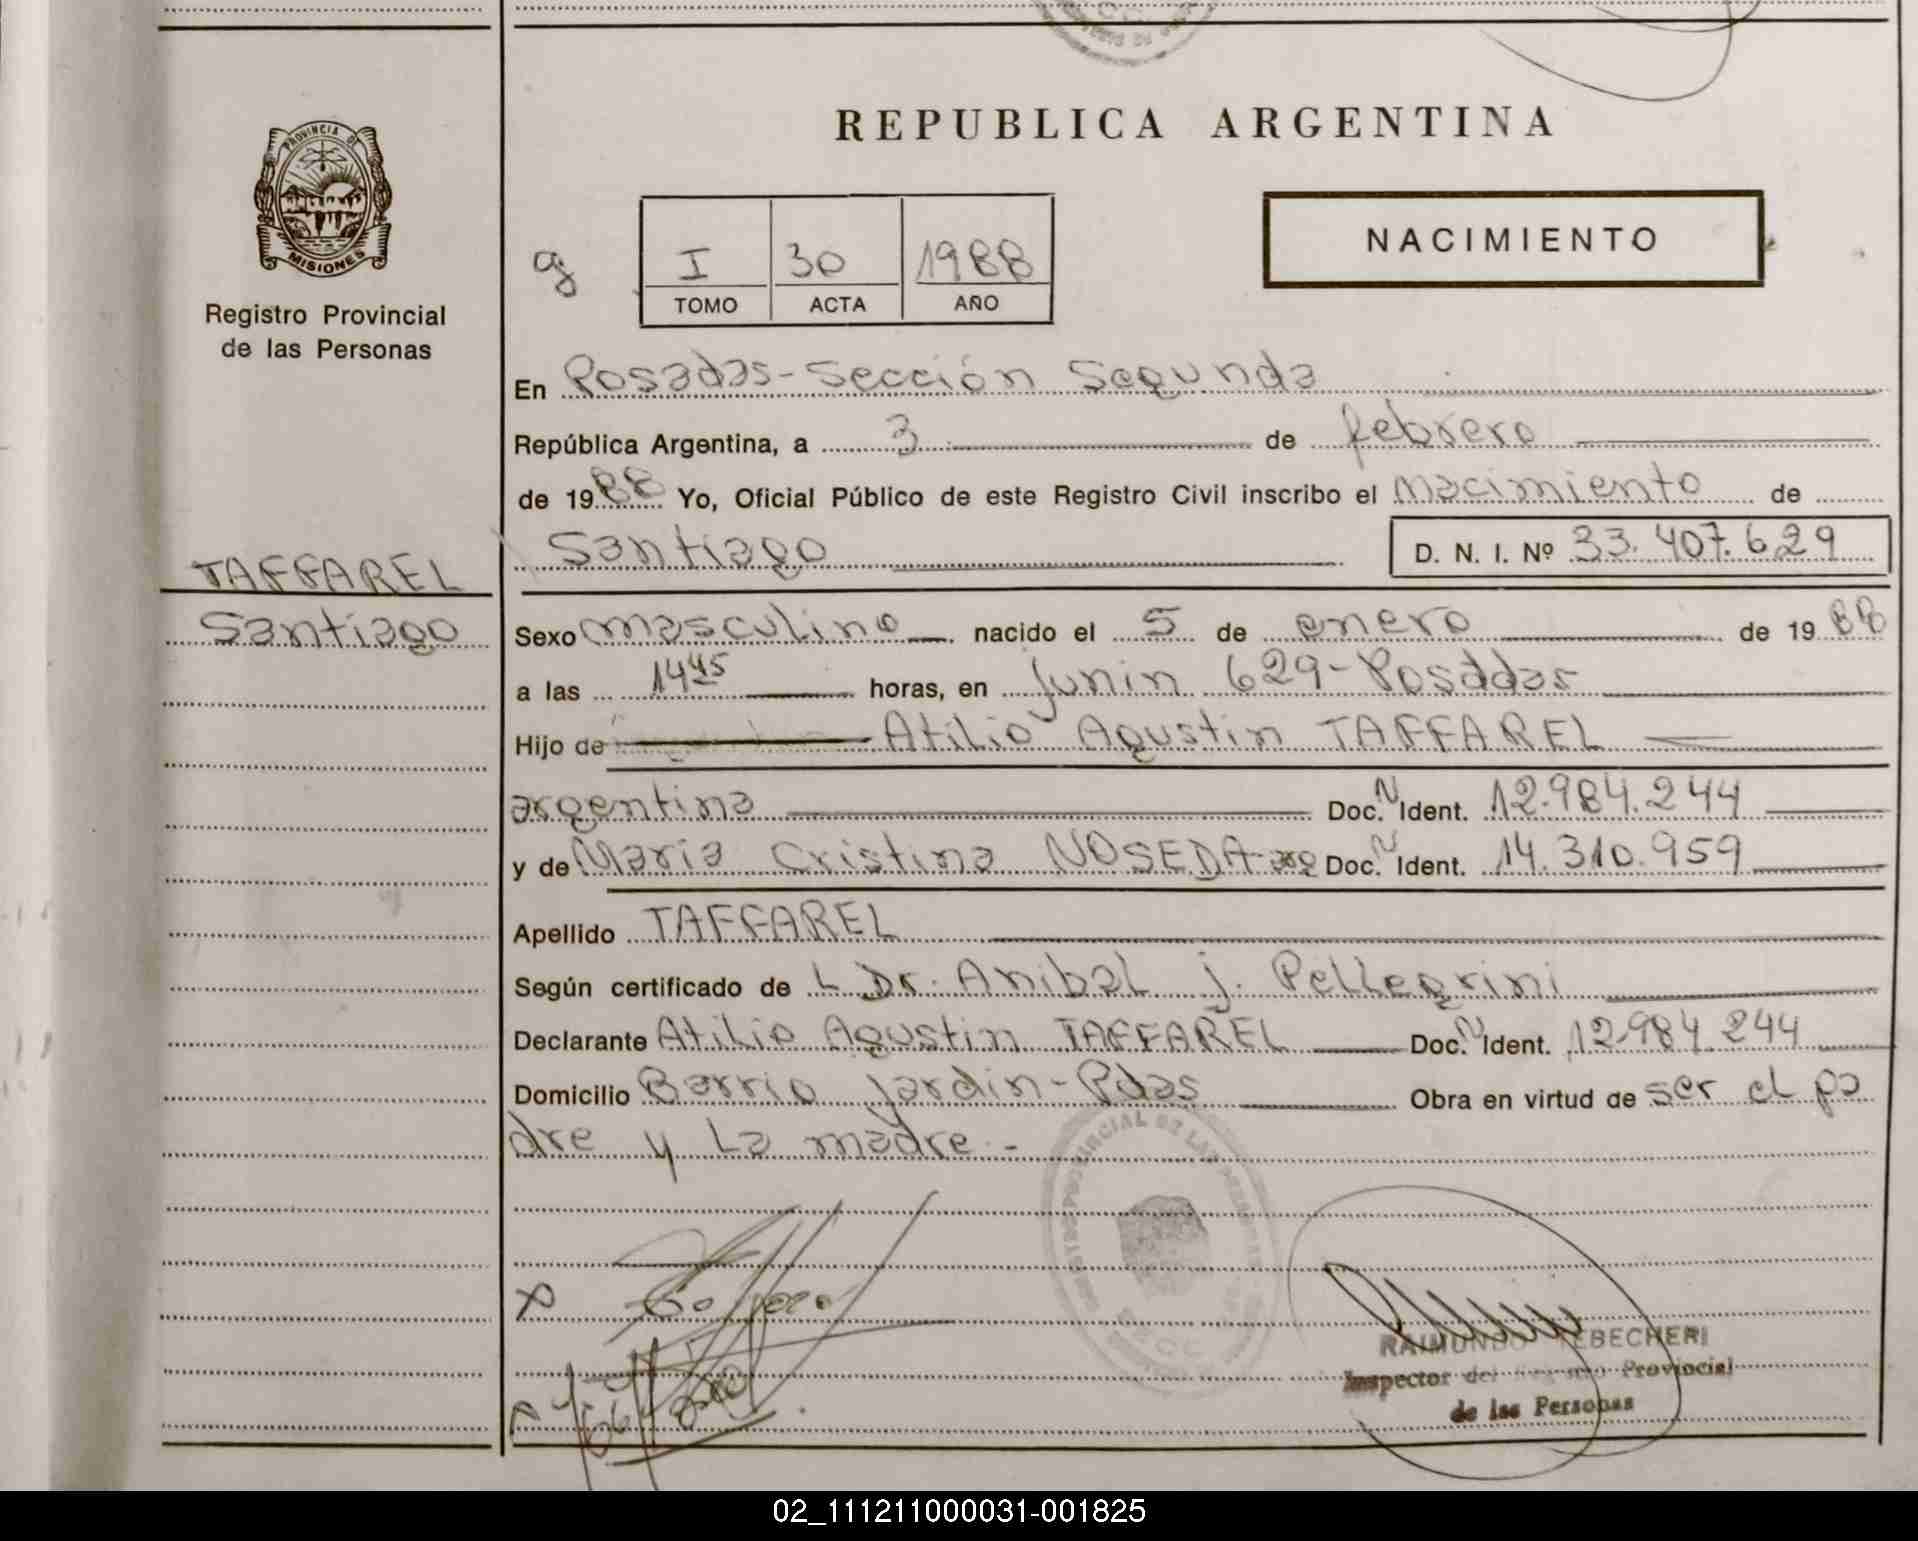 PROVINCIA DE
MISIONES
Registro Provincial
de las Personas
TAFFAREL
Santiago
REPUBLICA ARGENTINA
I 30 1988
TOMO ACTA AÑO
NACIMIENTO
En Posadas-Sección Segunda
República Argentina, a 3 de febrero
de 1988 Yo, Oficial Público de este Registro Civil inscribo el nacimiento de
Santiago D. N. I. Nº 33.407.629
Sexo masculino nacido el 5 de enero de 1988
a las 14 45 horas, en Junin 629-Posadas
Hijo de Atilio Agustin TAFFAREL
argentina Doc. N Ident. 12.984.244
y de Maria Cristina NOSEDA-arg Doc. N Ident. 14.310.959
Apellido TAFFAREL
Según certificado de L Dr. Anibal J. Pellegrini
Declarante Atilio Agustin TAFFAREL Doc. N Ident. 12.984.244
Domicilio Barrio Jardin-Pdas Obra en virtud de ser el pa
dre y La madre.-
RAIMUNDO TEBECHERI
Inspector del Registro Provincial
de las Personas
02_111211000031-001825